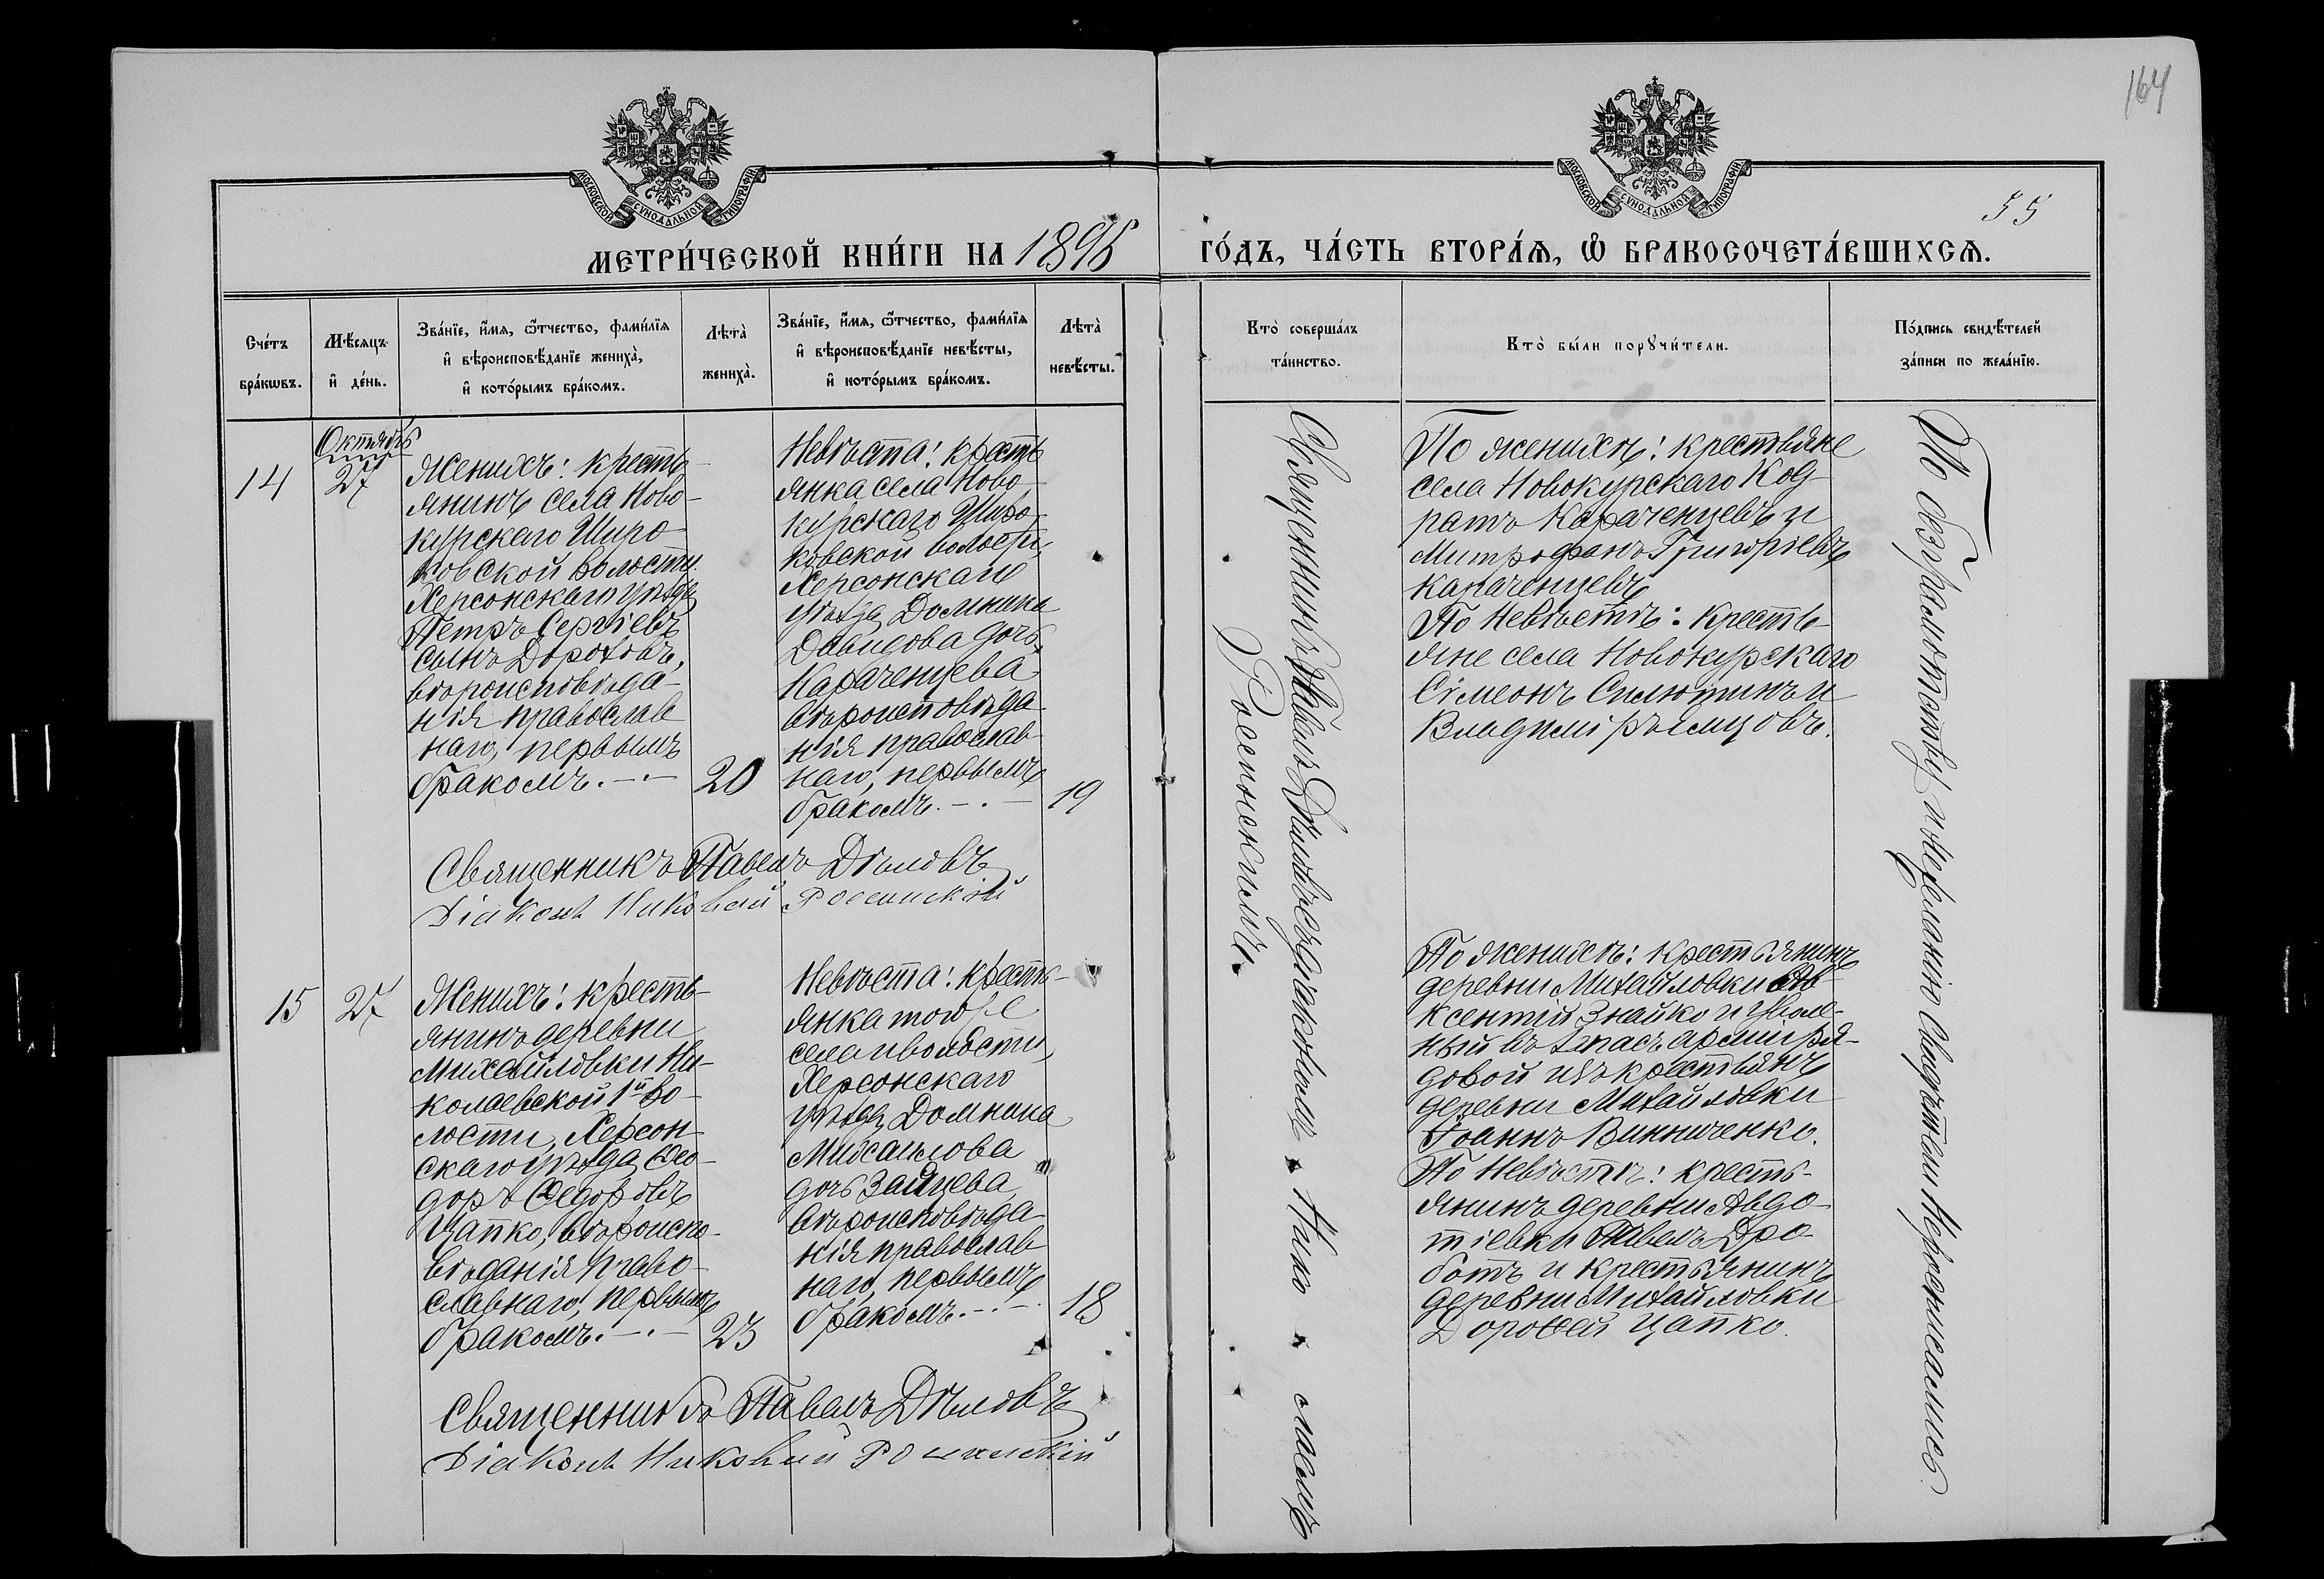 164
55
МОСКОВСКОЙ СѴНОДАЛЬНОЙ ТИПОГРАФІИ
МОСКОВСКОЙ СѴНОДАЛЬНОЙ ТИПОГРАФІИ
МЕТРИ́ЧЕСКОЙ КНИ́ГИ НА 1895
ГО́ДЪ, ЧА́СТЬ ВТОРА́Ѧ, Ѽ БРАКОСОЧЕТА́ВШИХСѦ.
Сче́тъ
бра́кѡвъ.
Мѣ́сяцъ
и҆ де́нь.
Зва́нїе, и҆́мя, ѻ҆́тчество, фами́лїя
и҆ вѣроисповѣ́данїе жениха̀,
и҆ кото́рымъ бра́комъ.
Лѣта̀
жениха̀.
Зва́нїе, и҆́мя, ѻ҆́тчество, фами́лїя
и҆ вѣроисповѣ́данїе невѣ́сты,
и҆ кото́рымъ бра́комъ.
Лѣта̀
невѣ́сты.
Кто̀ соверша́лъ
та́инство.
Кто̀ бы́ли порꙋчи́тели.
По́дпись свидѣ́телей
за́писи по жела́нїю.
14
Октябрь
27
Женихъ: кресть-
янинъ села Ново-
курскаго Широ-
ковской волости
Херсонскаго уѣзда
Петръ Сергіевъ
сынъ Дороховъ,
вѣроисповѣда-
нія православ
наго, первымъ
бракомъ.-.-
20
Невѣста: кресть
янка села Ново-
курскаго Широ-
ковской волости,
Херсонскаго
уѣзда Домникия
Давидова дочь
Караченцева
вѣроисповѣда-
нія православ-
наго, первымъ
бракомъ.-.-
19
Священникъ Павелъ Дѣловъ
Діаконъ Николай Россинскій
Священникъ Павелъ Дѣловъ съ діакономъ Нико лаемъ
Россинскимъ.
По женихѣ: крестьяне
села Новокурскаго Код-
ратъ Карченцевъ и
Митрофанъ Григоріевъ
Караченцевъ
По невѣстѣ: кресть-
яне села Новокурскаго
Сімеонъ Силютинъ и
По безграмотству и нежеланію свидѣтели нерописались
15
27
Женихъ: кресть-
янинъ деревни
Михайловки Ни-
колаевской 1й во-
лости, Херсон-
скаго уѣзда Ѳео-
доръ Ѳедоровъ
Цапко, вѣроиспо-
вѣданія право-
славнаго, первымъ
бракомъ.-.-
23
Невѣста: кресть-
янка того же
села и волости,
Херсонскаго
уѣзда Домнина
Михаилова
дочь Зайцева
вѣроисповѣда-
нія православ-
наго, первымъ
бракомъ.-.-.
18
Священникъ Павелъ Дѣловъ
Діаконъ Николай Россинскій
По женихѣ: крестьянинъ
деревни Михайловки Ав-
ксентій Знайко и уволе-
ный въ запасъ арміи ря-
довой изъ крестьянъ
деревни Михайловки
Іоаннъ Винниченко.
По невѣстѣ: кресть-
янинъ деревни Авдо-
тіевки Павелъ Дро-
ботъ и крестьянинъ
деревни Михайловки
Дороѳей Цапко.